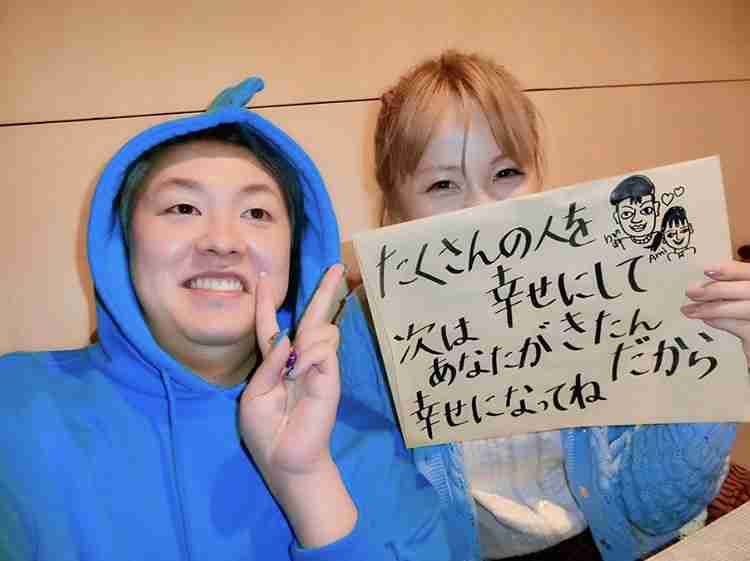 たくさんの人を
幸せにして
次は
あなたがきたん
だから
幸せになってね
Ami